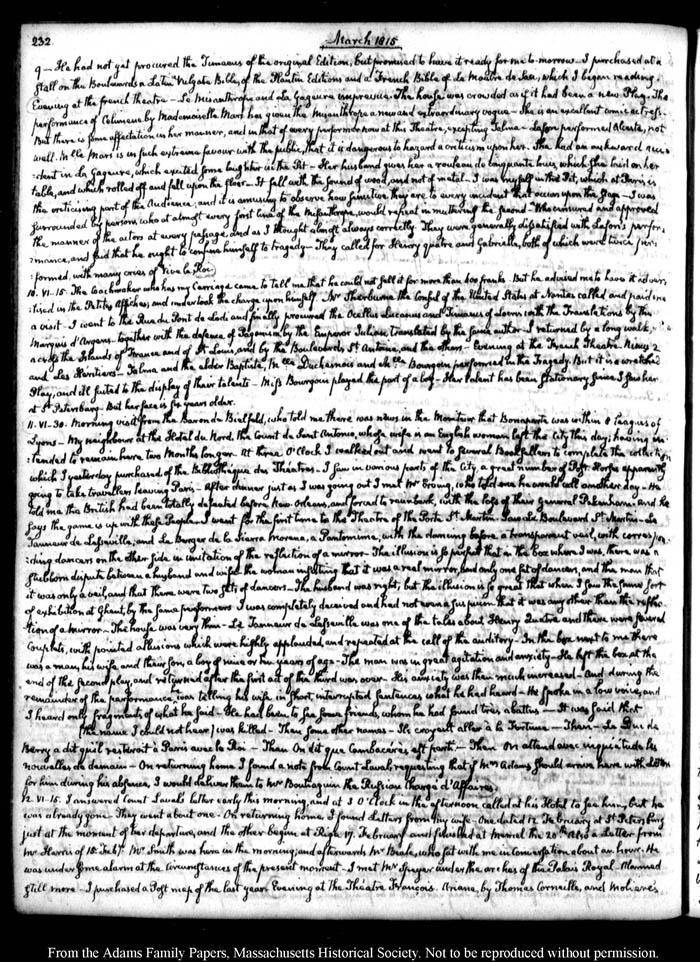 232
March 1815
9 — He had not yet procured the Timaeus of the original Edition, but promised to have it ready for me to-morrow — I purchased at a
stall on the Boulevards a Latin Vulgate Bible, of the Plantin Editions and a French Bible of Le Maitre de Saci, which I began reading.
Evening at the french Theatre — Le Misanthrope and La Gageure imprevue. The house was crowded as if it had been a new Play. The
performance of Celimene by Mademoiselle Mars has given the Misanthrope a new and extraordinary vogue — She is an excellent comic actress.
But there is some affectation in her manner, and in that of every performer now at this Theatre, excepting Talma — Lafon performed Alceste, not
well. Mlle Mars is in such extreme favour with the public, that it is dangerous to hazard a criticism upon her. She had an awkward acci-
:dent in La Gageure, which excited some laughter in the Pit — Her husband gives her a rouleau de cinquante louis, which she laid on her
table, and which rolled off and fell upon the floor — It fell with the sound of wood, and not of metal — I was myself in the Pit, which at Paris is
the criticising part of the Audience, and it is amusing to observe how sensitive they are to every incident that occurs upon the Stage — I was
surrounded by persons, who at almost every first line of the Misanthrope, would repeat in muttering the second — Who censured and approved
the manner of the actors at every passage, and as I thought almost always correctly. They were generally dissatisfied with Lafon's perfor-
:mance, and said that he ought to confine himself to tragedy — They called for Henry quatre and Gabrielle, both of which were twice per-
:formed, with many cries of Vive le Roi.
10. VI-15. The Coachmaker who has my Carriage came to tell me that he could not sell it for more than 600 franks. But he advised me to have it adver-
:tised in the Petites Affiches, and undertook the charge upon himself. Mr Thorburne the Consul of the United States at Nantes called and paid me
a visit — I went to the Rue du Pont de Lodi, and finally procured the Ocellus Lucanus and Timaeus of Locris with the Translations by the
Marquis d'Argens, together with the defence of Paganism by the Emperor Julian translated by the same author — I returned by a long walk,
across the Islands of France and of St Louis, and by the Boulevards St Antoine, and the others — Evening at the French Theatre. Ninus 2
and Les Heritiers — Talma and the elder Baptiste, Mlle Duchesnois and Mlle Bourgoin performed in the Tragedy. But it is a wretched
Play, and ill suited to the display of their talents — Miss Bourgoin played the part of a boy — Her talent has been stationary since I saw her
at St Petersburg. But her face is six years older.
11. VI-30. Morning visit from the Baron de Bielfeld, who told me there was news in the Moniteur that Bonaparte was within 8 leagues of
Lyons — My neighbour at the Hotel du Nord, the Count de Sant Antonio, whose wife is an English woman left the city this day; having in-
:tended to remain here two Months longer. At three O'Clock I walked out and went to several Booksellers to complete the collection
which I yesterday purchased of the Bibliotheque des Théatres — I saw in various parts of the City, a great number of Post Horses apparently
going to take travellers leaving Paris — After dinner just as I was going out I met Mr Erving, who told me he would call another day — He
told me the British had been totally defeated before New-Orleans, and forced to reembark, with the loss of their General Pakenham: and he
says the game is up with these People. I went for the first time to the Theatre of the Porte St Martin — Boulevard St Martin — Le
Tanneur de Lesseville, and Le Berger de la Sierra Morena, a Pantomime, with the dancing before a transparent veil, with correspon-
:ding dancers on the other side in imitation of the reflection of a mirror — The illusion is so perfect that in the box where I was, there was a
stubborn dispute between a husband and wife, the woman insisting that it was a real mirror, and only one set of dancers, and the man that
it was only a veil, and that there were two sets of dancers — The husband was right; but the illusion is so great that when I saw the same sort
of exhibition at Ghent, by the same performers I was completely deceived and had not even a suspicion that it was any other than the reflec-
:tion of a mirror — The house was very thin — Le Tanneur de Lesseville was one of the tales about Henry Quatre and there were several
Couplets, with pointed allusions which were highly applauded, and repeated at the call of the auditory — In the box next to me there
was a man, his wife and their son, a boy of nine or ten years of age — The man was in great agitation and anxiety — He left the box at the
end of the second play, and returned after the first act of the third was over — His anxiety was then much increased — And during the
remainder of the performance, was telling his wife, in short, interrupted sentences what he had heard — He spoke in a low voice, and
I heard only fragments of what he said — He had been to see some friends, whom he had found très abattus — It was said that
(the name I could not hear) was killed — Then some other names — Ils croyent aller à la Fortune — Then — Le Duc de
Berry a dit qu'il resteroit à Paris avec le Roi — Then On dit que Cambaceres est parti — Then On attend avec inquietude les
nouvelles de demain — On returning home I found a note from Count Laval, requesting that if Mrs Adams should arrive here with letters
for him during his absence, I would deliver them to Mr Boutiaguin the Russian Chargé d'Affaires.
12. VI-15. I answered Count Laval's letter early this morning, and at 3 O'Clock in the afternoon called at his Hotel to see him, but he
was already gone. They went about one — On returning home, I found Letters from my wife — One dated 12 February at St Petersburg
just at the moment of her departure, and the other begun at Riga 17. February and finished at Memel the 20th Also a letter from
Mr Harris of 15. Feby. Mr Smith was here in the morning; and afterwards Mr Beale, who sat with me in Conversation about an hour. He
was under some alarm at the circumstances of the present moment — I met Mr Speyer under the arches of the Palais Royal — Alarmed
still more — I purchased a Post map of the last year. Evening at the Théatre François. Ariane, by Thomas Corneille, and Moliere's
From the Adams Family Papers, Massachusetts Historical Society. Not to be reproduced without permission.